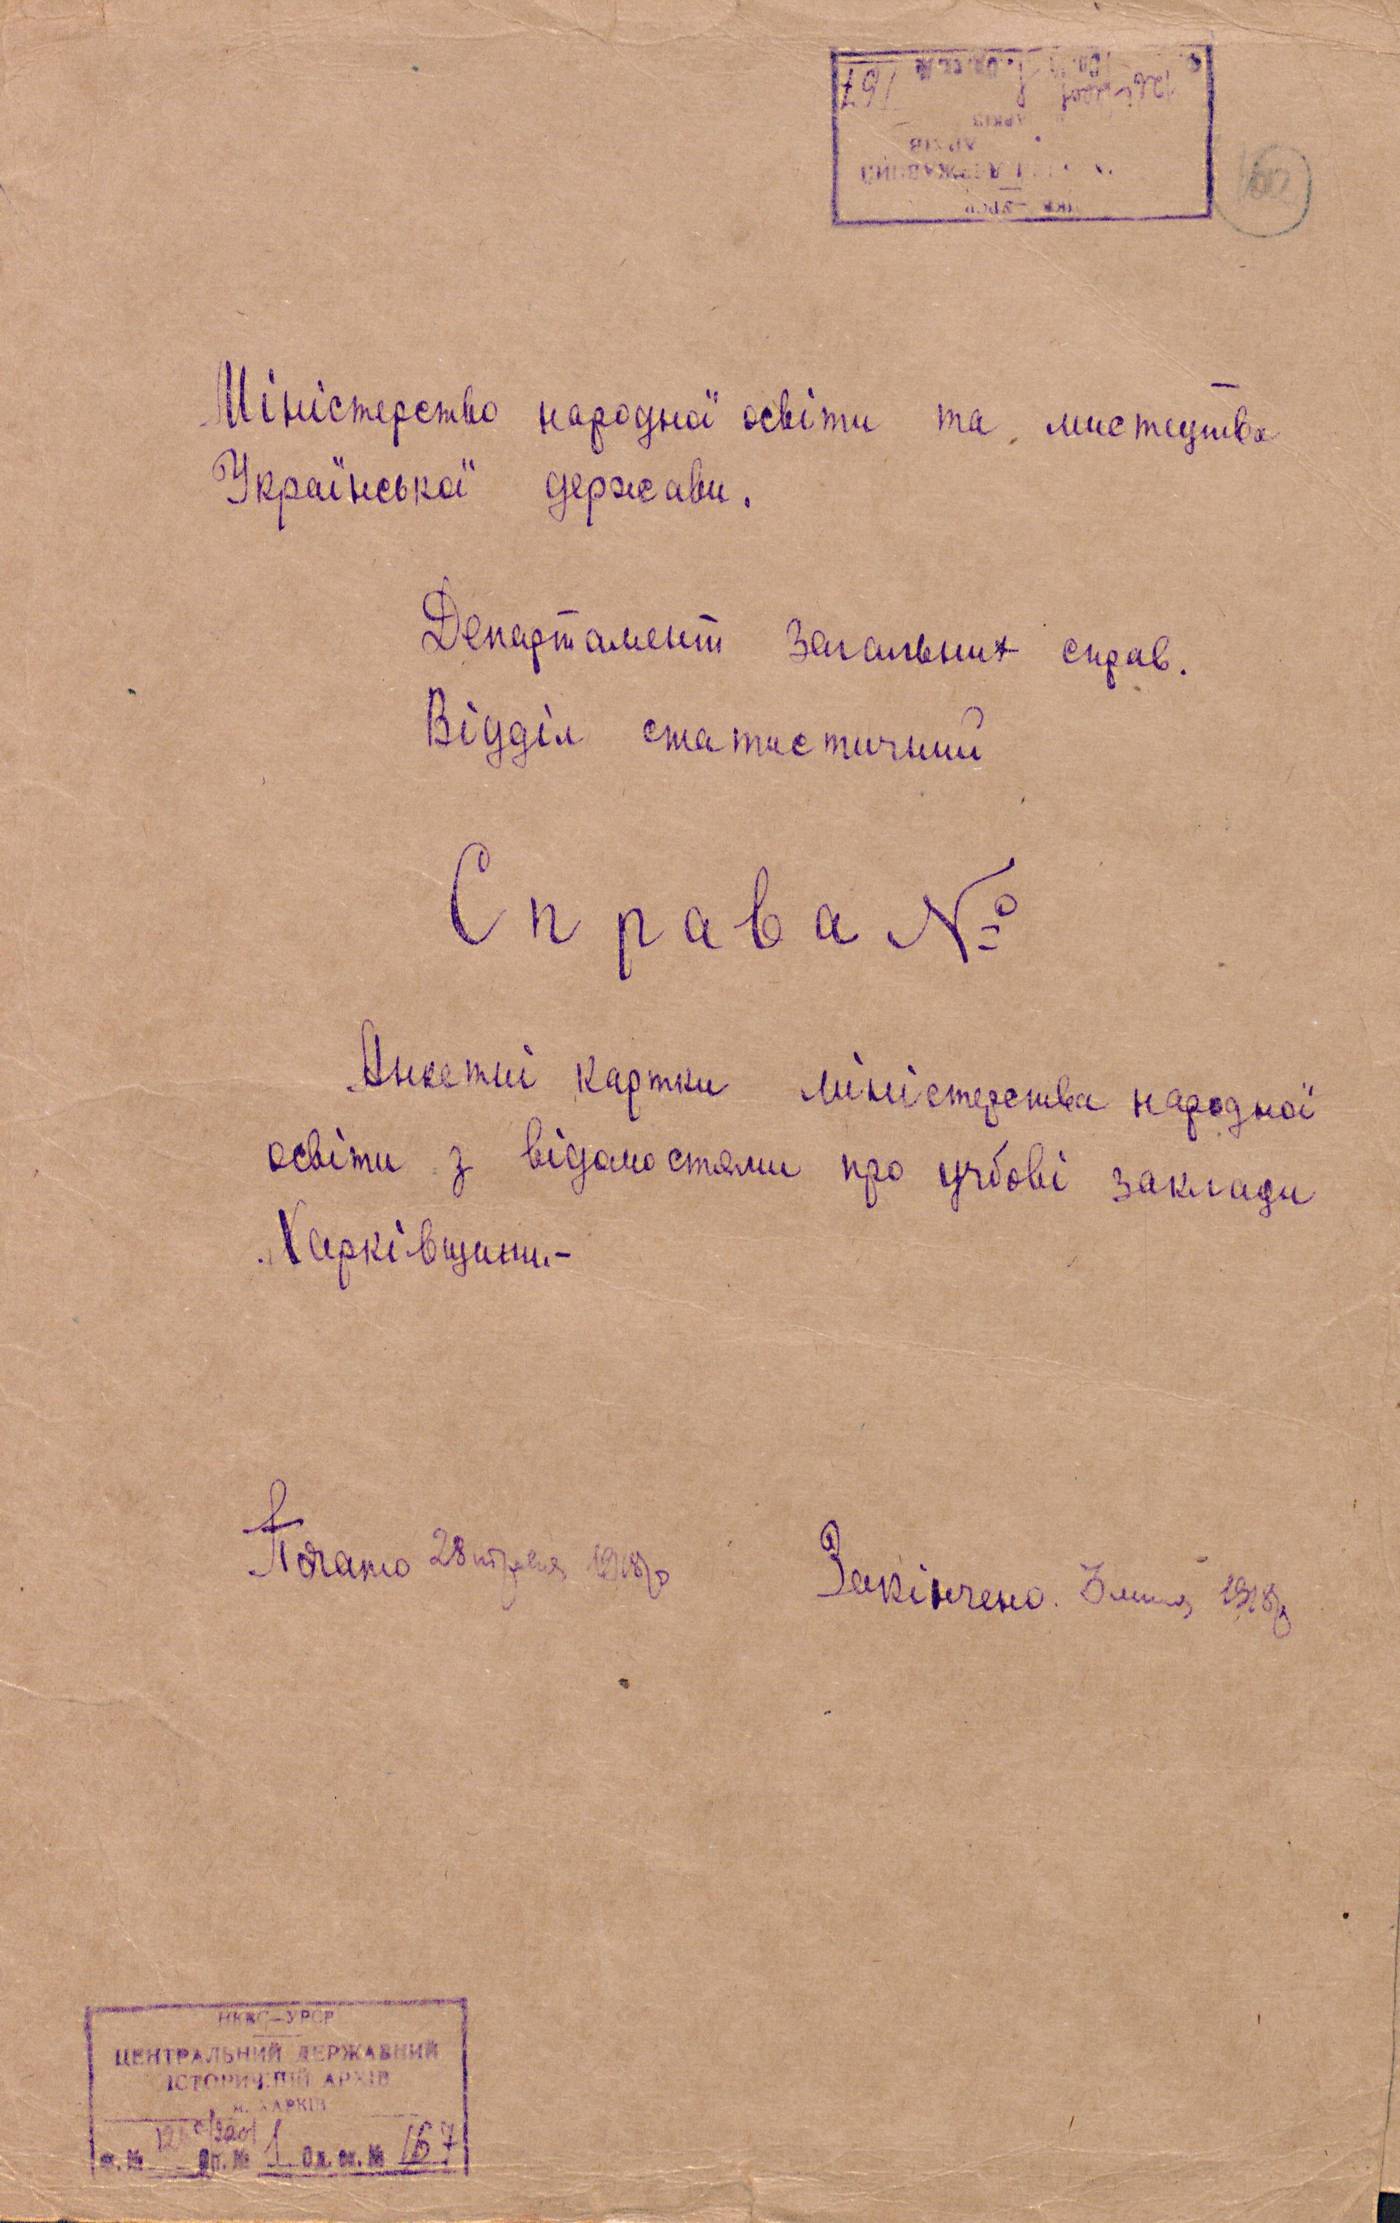 167
Міністерство народної освіти та мистецтва
Української держави.
Департамент загальних справ.
Відділ статистичний
Справа №
Анкетні картки міністерства народної
освіти з відомостями про учбові заклади
Харківщини.-
Почато 28 1918р
Закінчено. 3 липня 1918р
НКВС-УРСР
ЦЕНТРАЛЬНИЙ ДЕРЖАВНИЙ
ІСТОРИЧНИЙ АРХІВ
м. ХАРКІВ
Ф. № Оп. № 1 Од. зб. № 167